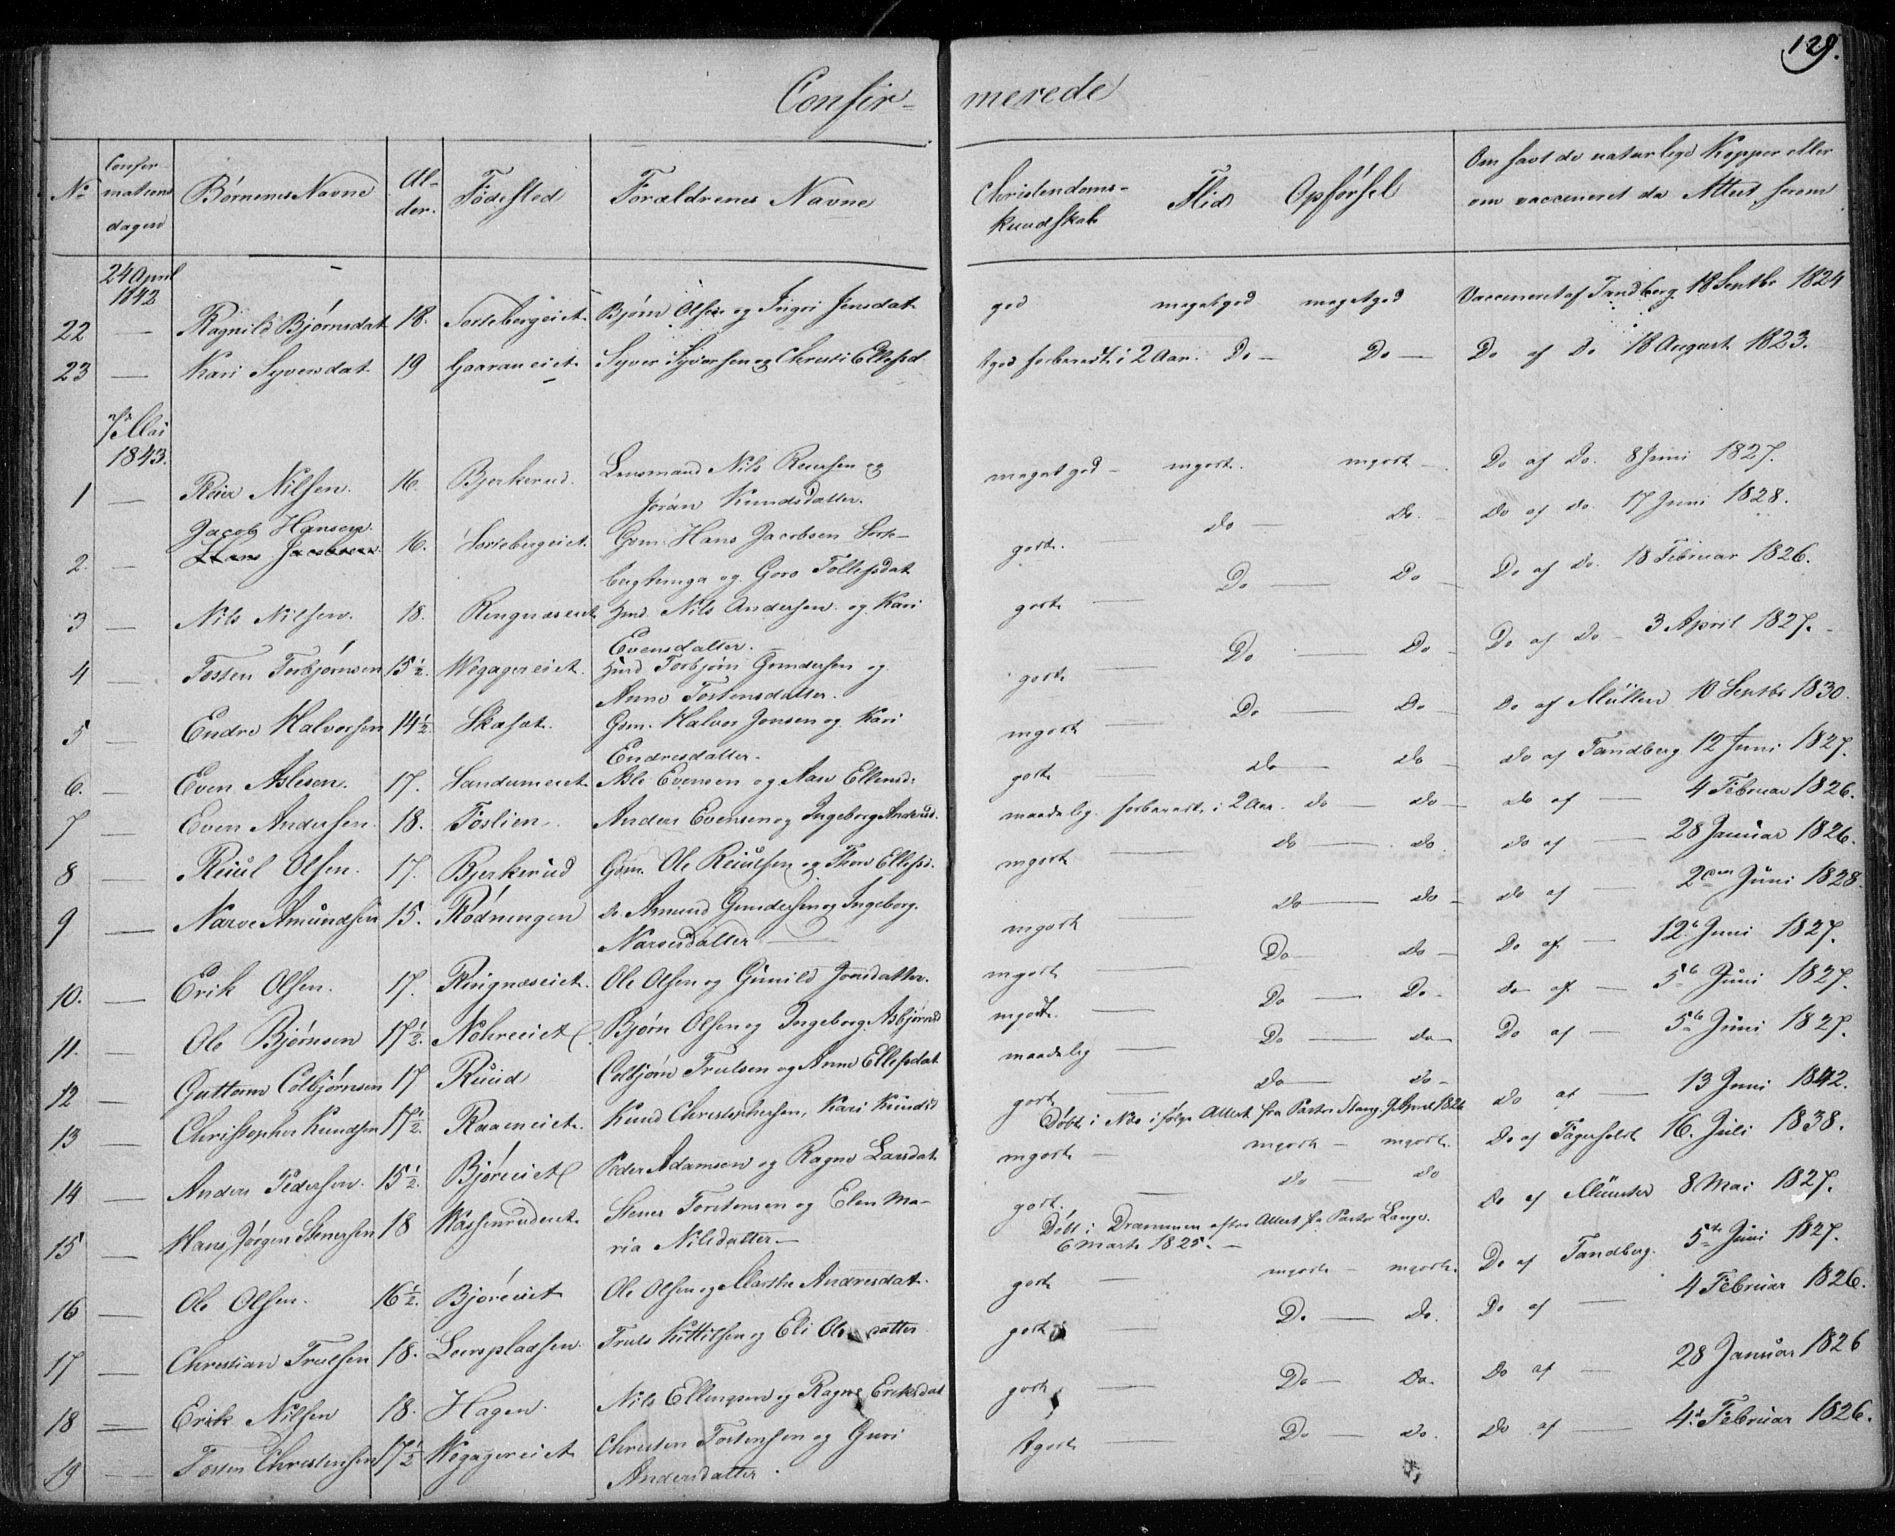 129.
Confir- merede
No Confirmations dagene Børnenes Navne Alder. Fødested Forældrenes Navne Christendoms-kundskab Flid Opførsel Om havt de naturlige Kopper eller om vaccineret da Attest herom
24 April 1842
22 — Ragnild Bjørnsdat 18. Sortebergeiet Bjørn Olsen og Ingri Jensdat god megetgod megetgod Vaccineret af Tandberg 18 Septbr 1824
23 — Kari Syversdat 19 Syver Syversen og Christi Ellefsd forberedt i 2 Aar. Do — Do — Do af Do 18 August 1823.
7de Mai 1843.
1 — Reier Nilsen. 16. Bjerkerud. Lensmand Nils Reiersen og meget god — mgodt. mgodt — Do af Do. 8 Juni 1827.
Jøran Knudsdatter.
2. — Jacob Hansen. Hans Jacobsen 16. Sortebergeiet. Gbm. Hans Jacobsen Sorte- godt. do — do. Do af do. 17 Juni 1828.
og Goro Tollefsdat
3 — Nils Nilsen. 18. Ringnæseiet Hmd. Nils Andersen og Kari godt — Do — Do — Do af do. 18 Februar 1826.
Evensdatter.
4 — Tosten Torbjørnsen 15½. Wegagereiet. Hmd Torbjørn Gundersen og godt — Do — Do — Do af Do — 3 April 1827.
Anne Tostensdatter.
5 — Endre Halvorsen 14½ Skafset. Gbm. Halvor Jonsen og Kari mgodt — Do — Do — Do af Müller 10 Septbr 1830.
Endresdatter.
6. — Even Aslesen. 17. Sandumeiet Asle Evensen og Aase Ellensd: godt — do — do — do af Tandberg 12 Juni 1827.
7 — Even Andersen. 18. Foslien. Anders Evensen og Ingeborg Andersd. maadelig. forberedt i 2 Aar. do — do — do af — 4 Februar 1826.
8 — Reiul Olsen. 17. Bjerkerud Gbm. Ole Reiulsen og Thore Ellefsd. mgodt — do — do. do af — 28 Januar 1826.
9 — Narve Amundsen 15. Rødningen do Amund Gundersen og Ingeborg mgodt — do — do — do af — 2den Juni 1828.
Narvesdatter —
10. — Erik Olsen. 17. Ringnæseiet. Ole Olsen og Gunild Jonsdatter. mgodt — Do — do — Do af — 12te Juni 1827.
11. — Ole Bjørnsen 17½. Nohreeiet. Bjørn Olsen og Ingeborg Asbjørnsd mgodt. — Do — Do — do af — 5te Juni 1827.
12 — Guttorm Colbjørnsen 17 Ruud Colbjørn Trulsen og Anne Ellefsdat maadelig — Do — do — Do af — 5te Juni 1827.
13 — Christopher Knudsen 17½. Raaeneiet. Knud Christophersen, Kari Knudsd godt — do — do — do af — 13 Juni 1842.
Døbt i Næs ifølge Attest fra Pastor Stang 1826
14 — Anders Pedersen. 15½. Bjøreeiet Peder Adamsen og Ragne Larsdat mgodt — mgodt — mgodt. Do af Fagerholdt 16. Juli 1838.
15 — Hans Jørgen Stenersen 18 Wassenrudeiet Stener Torstensen og Elen Ma- godt. — do — do Do af Münster 8 Mai 1827.
ria Nilsdatter — Døbt i Drammen efter Attest fra Pastor Lange. 6 Marts 1825. —
16 — Ole Olsen. 16½. Bjøreeiet Ole Olsen og Marthe Andersdat. godt — mgodt — mgodt. Do af Tandberg. 5te Juni 1827.
17 — Christian Trulsen 18. Leerspladsen. Truls Kittilsen og Eli Ols datter godt — Do — do. Do af — 4 Februar 1826.
18 — Erik Nilsen 18. Hagen. Nils Ellingsen og Ragne Eriksdat godt — Do — Do. Do af — 28 Januar 1826
19 — Tosten Christensen 17½ Wegagereiet Christen Tostensen og Guri godt — Do — do. do af — 4de Februar 1826.
Andersdatter.